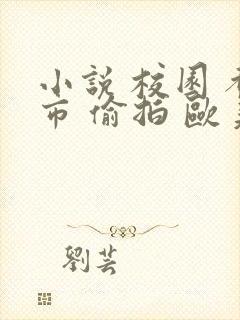 小說校園
市偷拍歐
劉芸